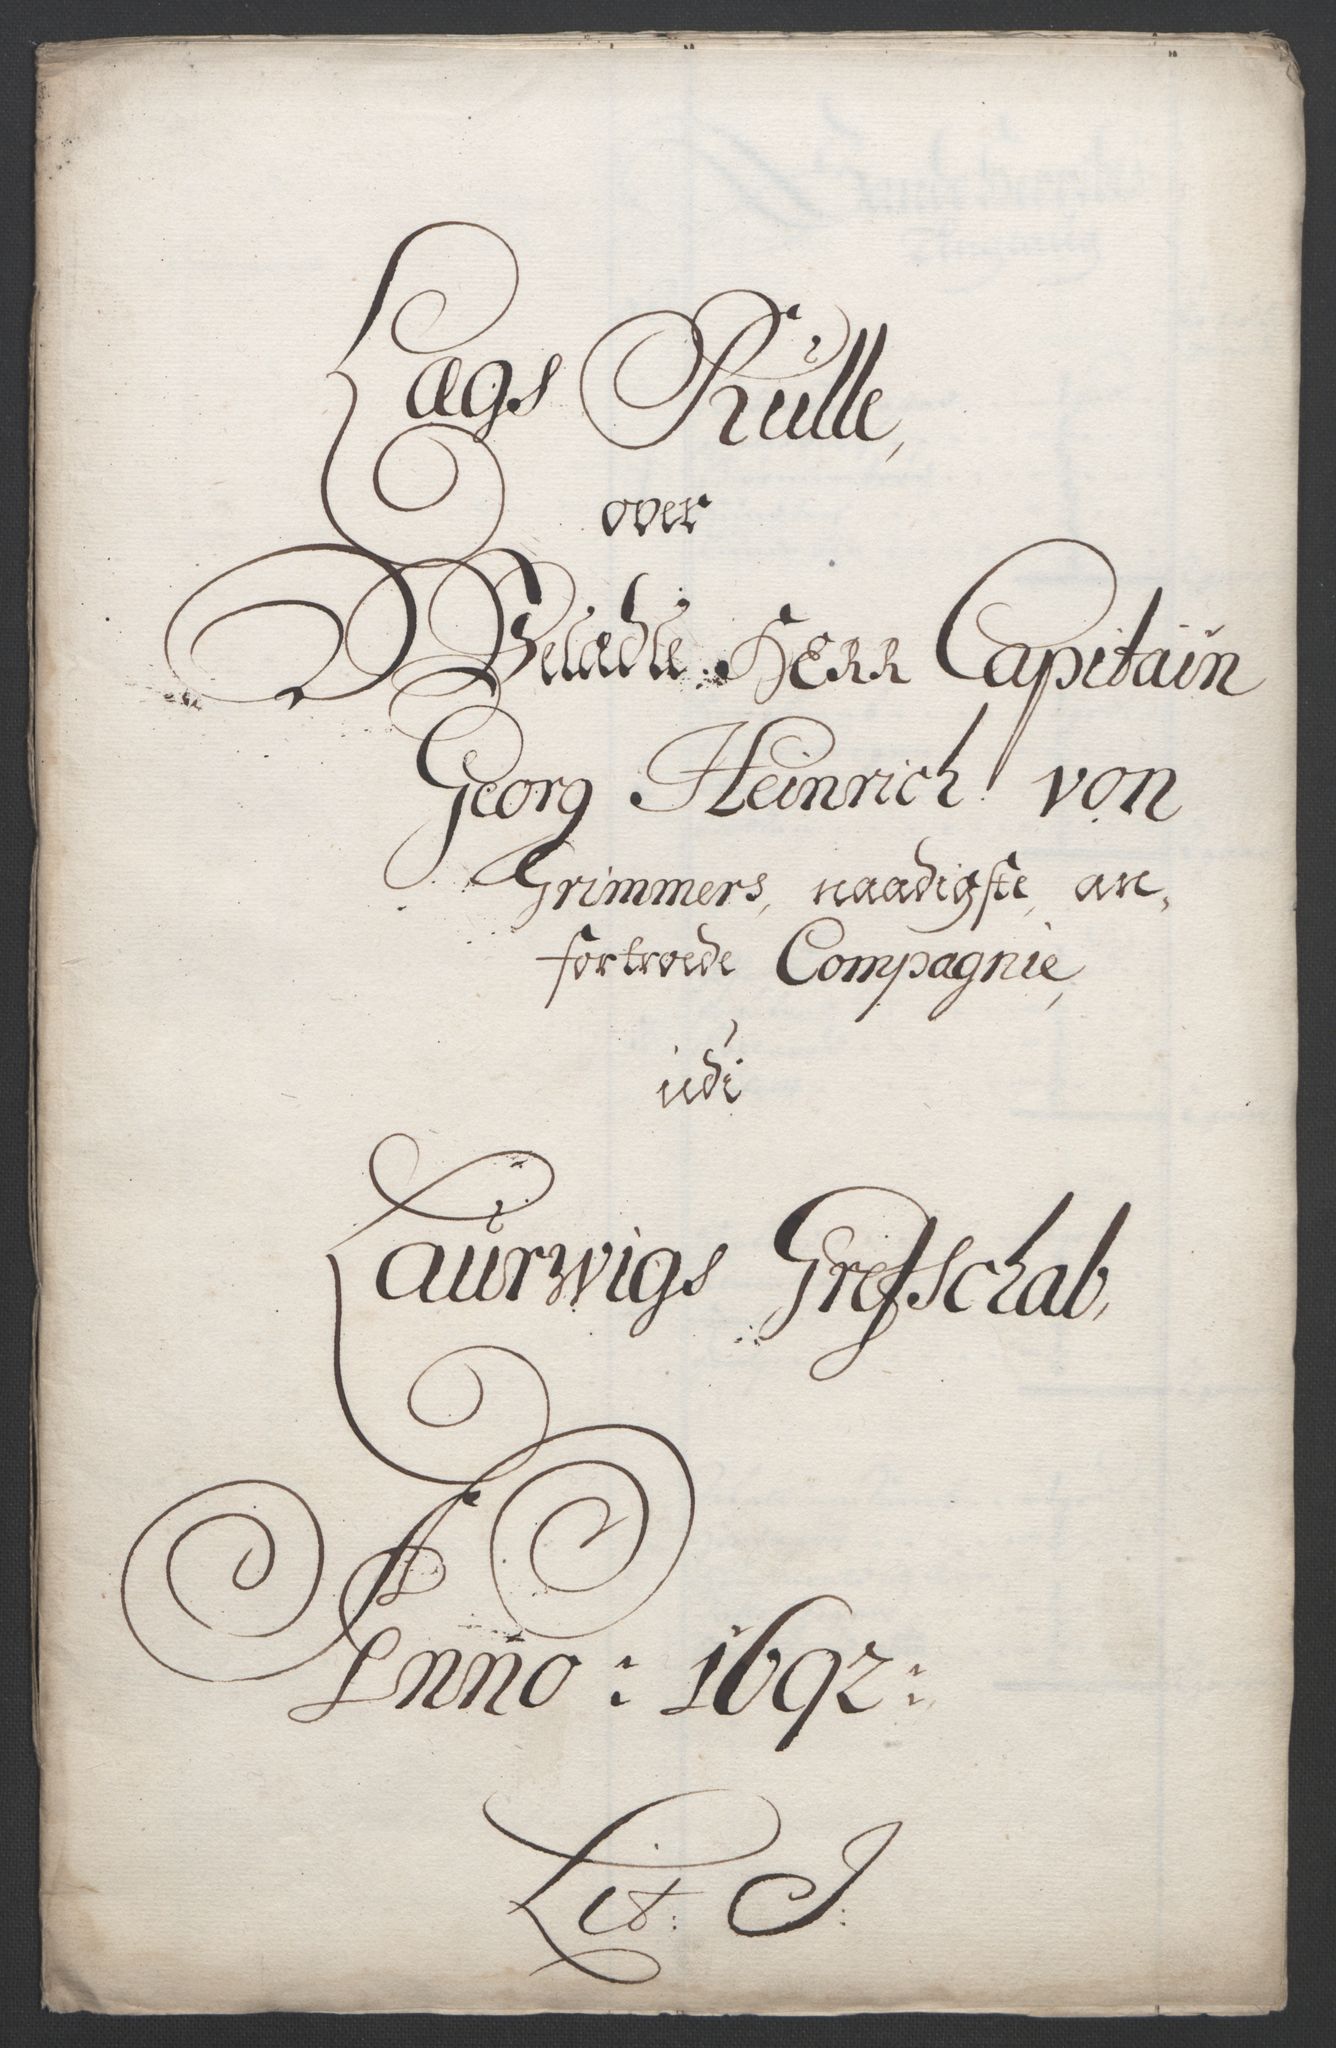 Lægs Rulle,
over
Velædle Herr Capitain
Georg Heinrich von
Grimmers, naadigste, an,
fortroede Compagnie,
udi
Laurwigs Grefschab,
Anno: 1692:
Lit: J: